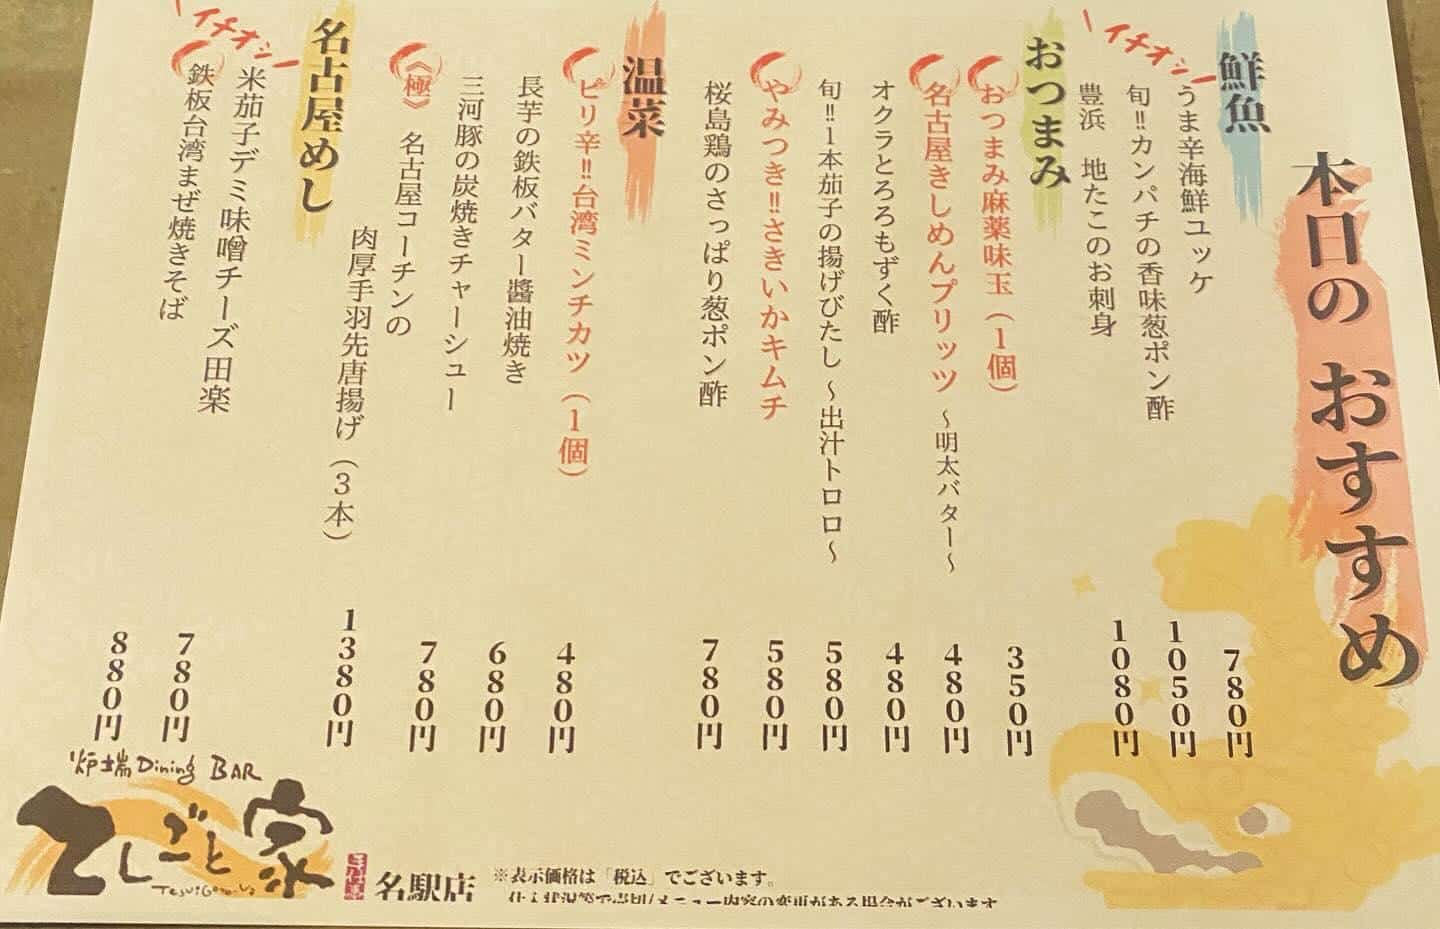 本日のおすすめ
鮮魚
イチオシ
うま辛海鮮ユッケ 780円
旬!!カンパチの香味葱ポン酢 1050円
豊浜 地たこのお刺身 1080円
おつまみ
おつまみ麻薬味玉(1個) 350円
名古屋きしめんプリッツ 〜明太バター〜 480円
オクラとろろもずく酢 480円
旬!!1本茄子の揚げびたし 〜出汁トロロ〜 580円
やみつき!!さきいかキムチ 580円
桜島鶏のさっぱり葱ポン酢 780円
温菜
ピリ辛!!台湾ミンチカツ(1個) 480円
長芋の鉄板バター醬油焼き 680円
三河豚の炭焼きチャーシュー 780円
《極》 名古屋コーチンの
肉厚手羽先唐揚げ(3本) 1380円
名古屋めし
イチオシ
米茄子デミ味噌チーズ田楽 780円
鉄板台湾まぜ焼きそば 880円
炉端Dining BAR
てしごと家
手仕事
名駅店
※表示価格は「税込」でございます。
仕入状況等で売切/メニュー内容の変更がある場合がございます